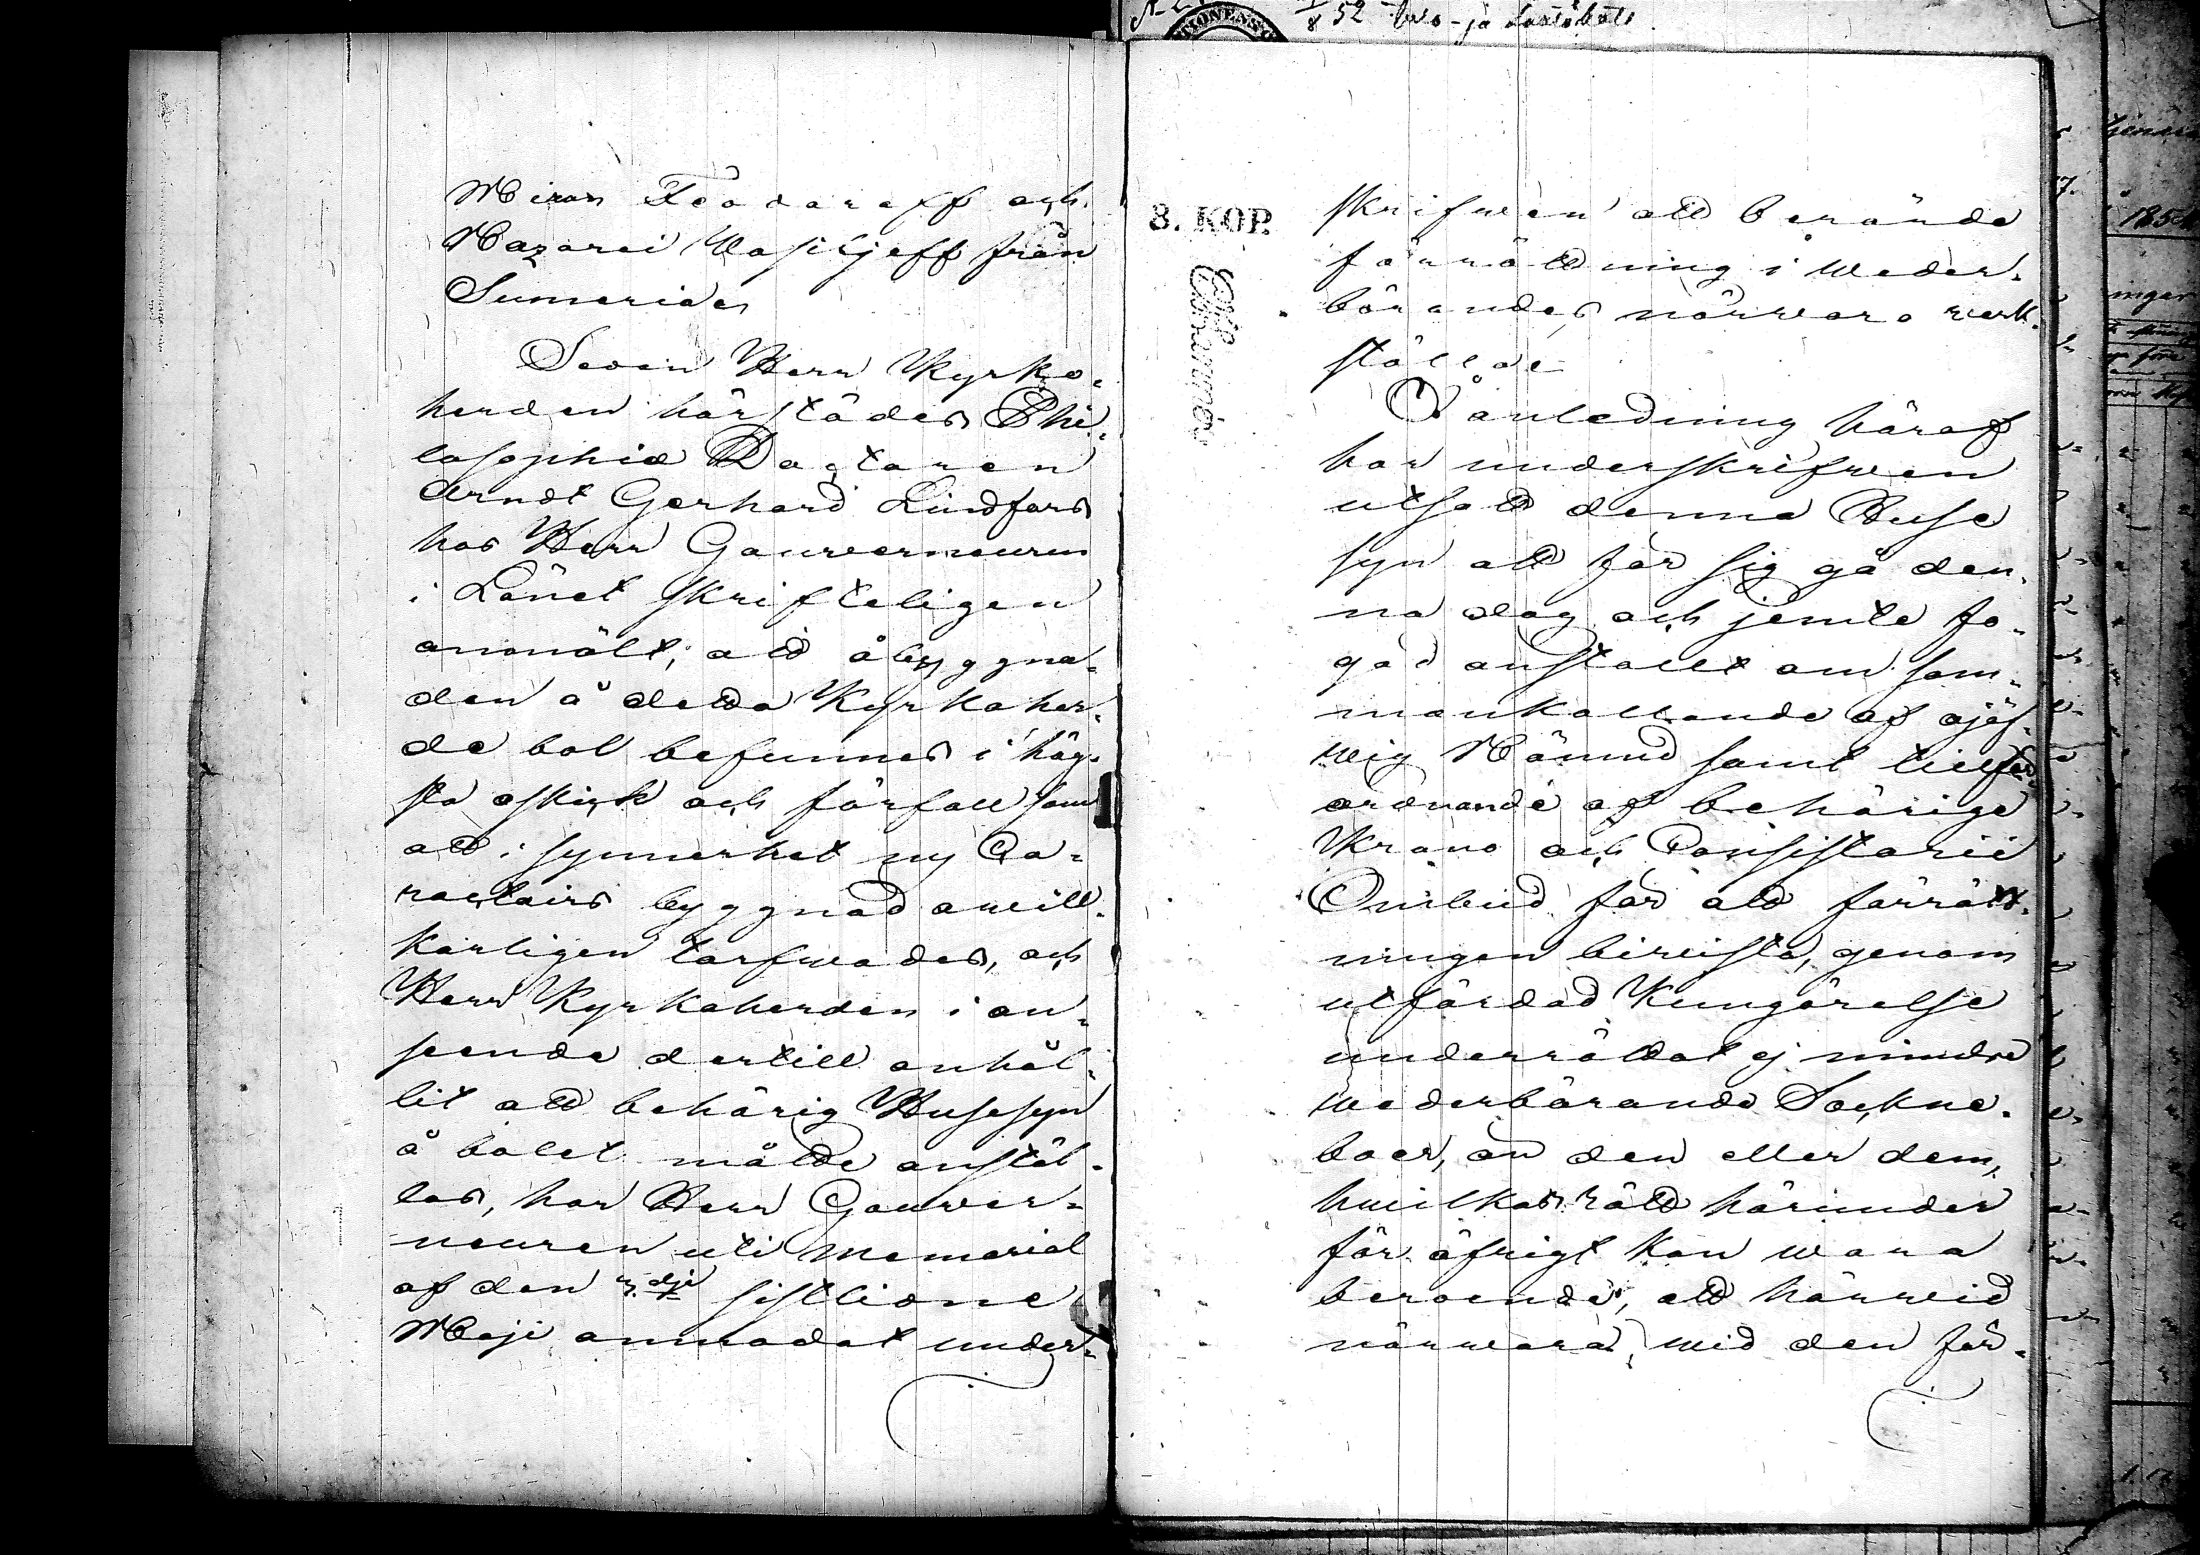 Miron Feodoroff och
Nazarei Wasiljeff från
Sumeria
Sedan Herr Kyrko-
herden härstädes Phi-
losophiæ Doctoren
Arndt Gerhard Lindfors
hos Herr Gouverneuren
i Länet skrifteligen
anmält, att åbyggna-
den å detta Kyrkoher-
de bol befunnes i hög-
sta oskick och förfall samt
att i synnerhet ny Ca-
ractairs byggnad owill-
korligen torfwades, och
Herr Kyrkoherden i an-
seende dertill anhål-
lit att behörig Husesyn
å bolet måtte anstäl-
las, har Herr Gouver-
neuren uti Memorial
af den 3.dje sistlidne
Maji anmodat under-
8. KOP.
skrifwen att berörde
förrättning i weder-
börandes närwaro werk-
ställa
I anledning häraf
har underskrifwen
utsatt denna Huse
syn att för sig gå den-
na dag och jemte fo-
gad anstallt om sam-
mankallande af ojäf-
wig Nämnd samt tillför
ordnande af behörige
Krono och Consistorii
Ombud för att förrätt-
ningen biwista, genom
utfärdad Kungörelse
underrättat ej mindre
wederbörande Sockne-
boer, än den eller dem,
hwilkas rätt härunder
för öfrigt kan wara
beroende, att härwid
närwara, wid den för-